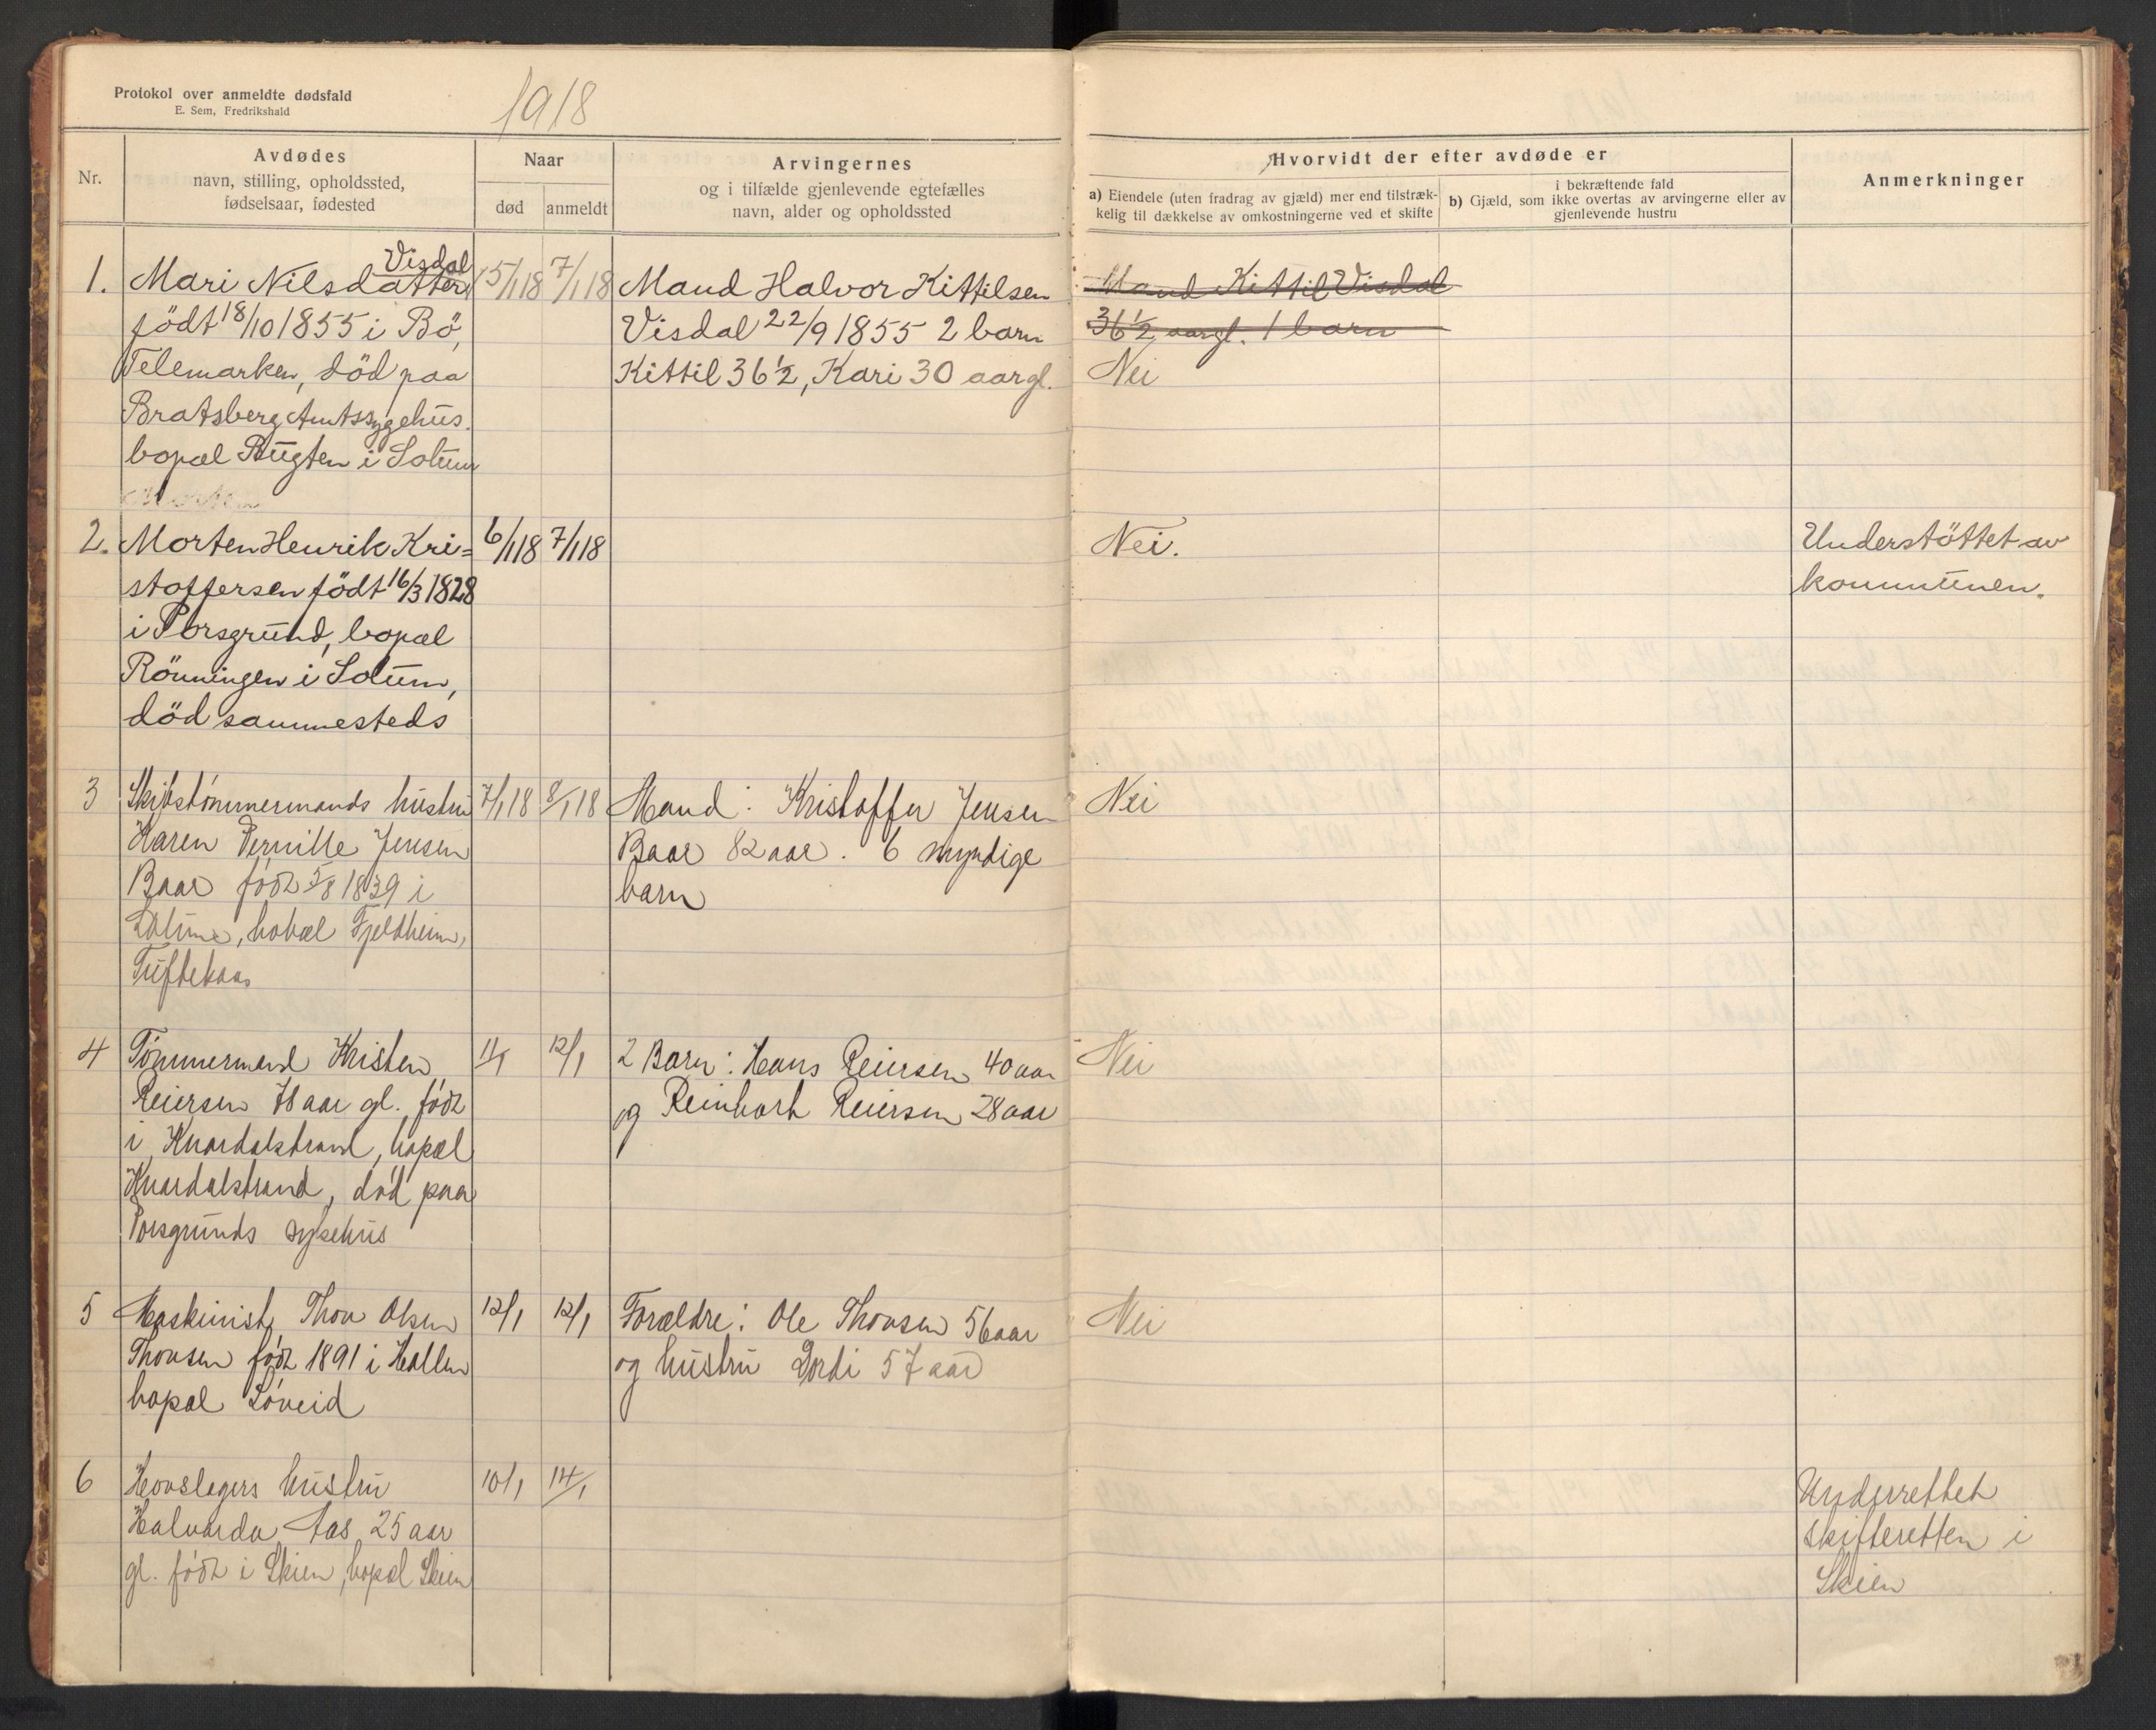 Protokol over anmeldte dødsfald
E. Sem, Fredrikshald
1918
Nr.
Avdødes
navn, stilling, opholdssted,
fødselsaar, fødested
Naar
død
anmeldt
Arvingernes
og i tilfælde gjenlevende egtefælles
navn, alder og opholdssted
Hvorvidt der efter avdøde er
a) Eiendele (uten fradrag av gjæld) mer end tilstræk-
kelig til dækkelse av omkostningerne ved et skifte
i bekræftende fald
b) Gjæld, som ikke overtas av arvingerne eller av
gjenlevende hustru
Anmerkninger
1.
Visdal
Mari Nilsdatter
født 18/10 1855 i Bö,
Telemarken, död paa
Bratsberg Amtssygehus.
bopæl Bugten i Solum
5/1 18
7/1 18
Mand Halvor Kittilsen
Visdal 22/9 1855 2 barn
Kittil 36½, Kari 30 aargl.
Mand Kittil Visdal
36½ aargl. 1 barn
Nei
2.
Morten Henrik Kri=
stoffersen födt 16/3 1828
i Porsgrund, bopæl
Rönningen i Solum,
död sammesteds
6/1 18
7/1 18
Nei.
Understöttet av
kommunen.
3
Skibstømmermands hustru
Karen Pernille Jensen
Baar født 5/8 1839 i
Solum, bopæl Fjeldheim,
Tuftekaas
7/1 18
8/1 18
Mand: Kristoffer Jensen
Baar 82 aar. 6 myndige
barn
Nei
4
Tømmermand Kristen
Reiersen 78 aar gl. født
i Knardalstrand, bopæl
Knardalstrand, død paa
Porsgrunds sykehus
11/1
12/1
2 Barn: Hans Reiersen 40 aar
og Reinhart Reiersen 28 aar
Nei
5
Maskinist Thov Olsen
Thovsen født 1891 i Hollen
bopæl Løveid
12/1
12/1
Forældre: Ole Thovsen 56 aar
og hustru Dorti 57 aar
Nei
6
Hovslagers hustru
Halvarda Aas 25 aar
gl. født i Skien, bopæl Skien
10/1
14/1
Underrettet
skifteretten i
Skien